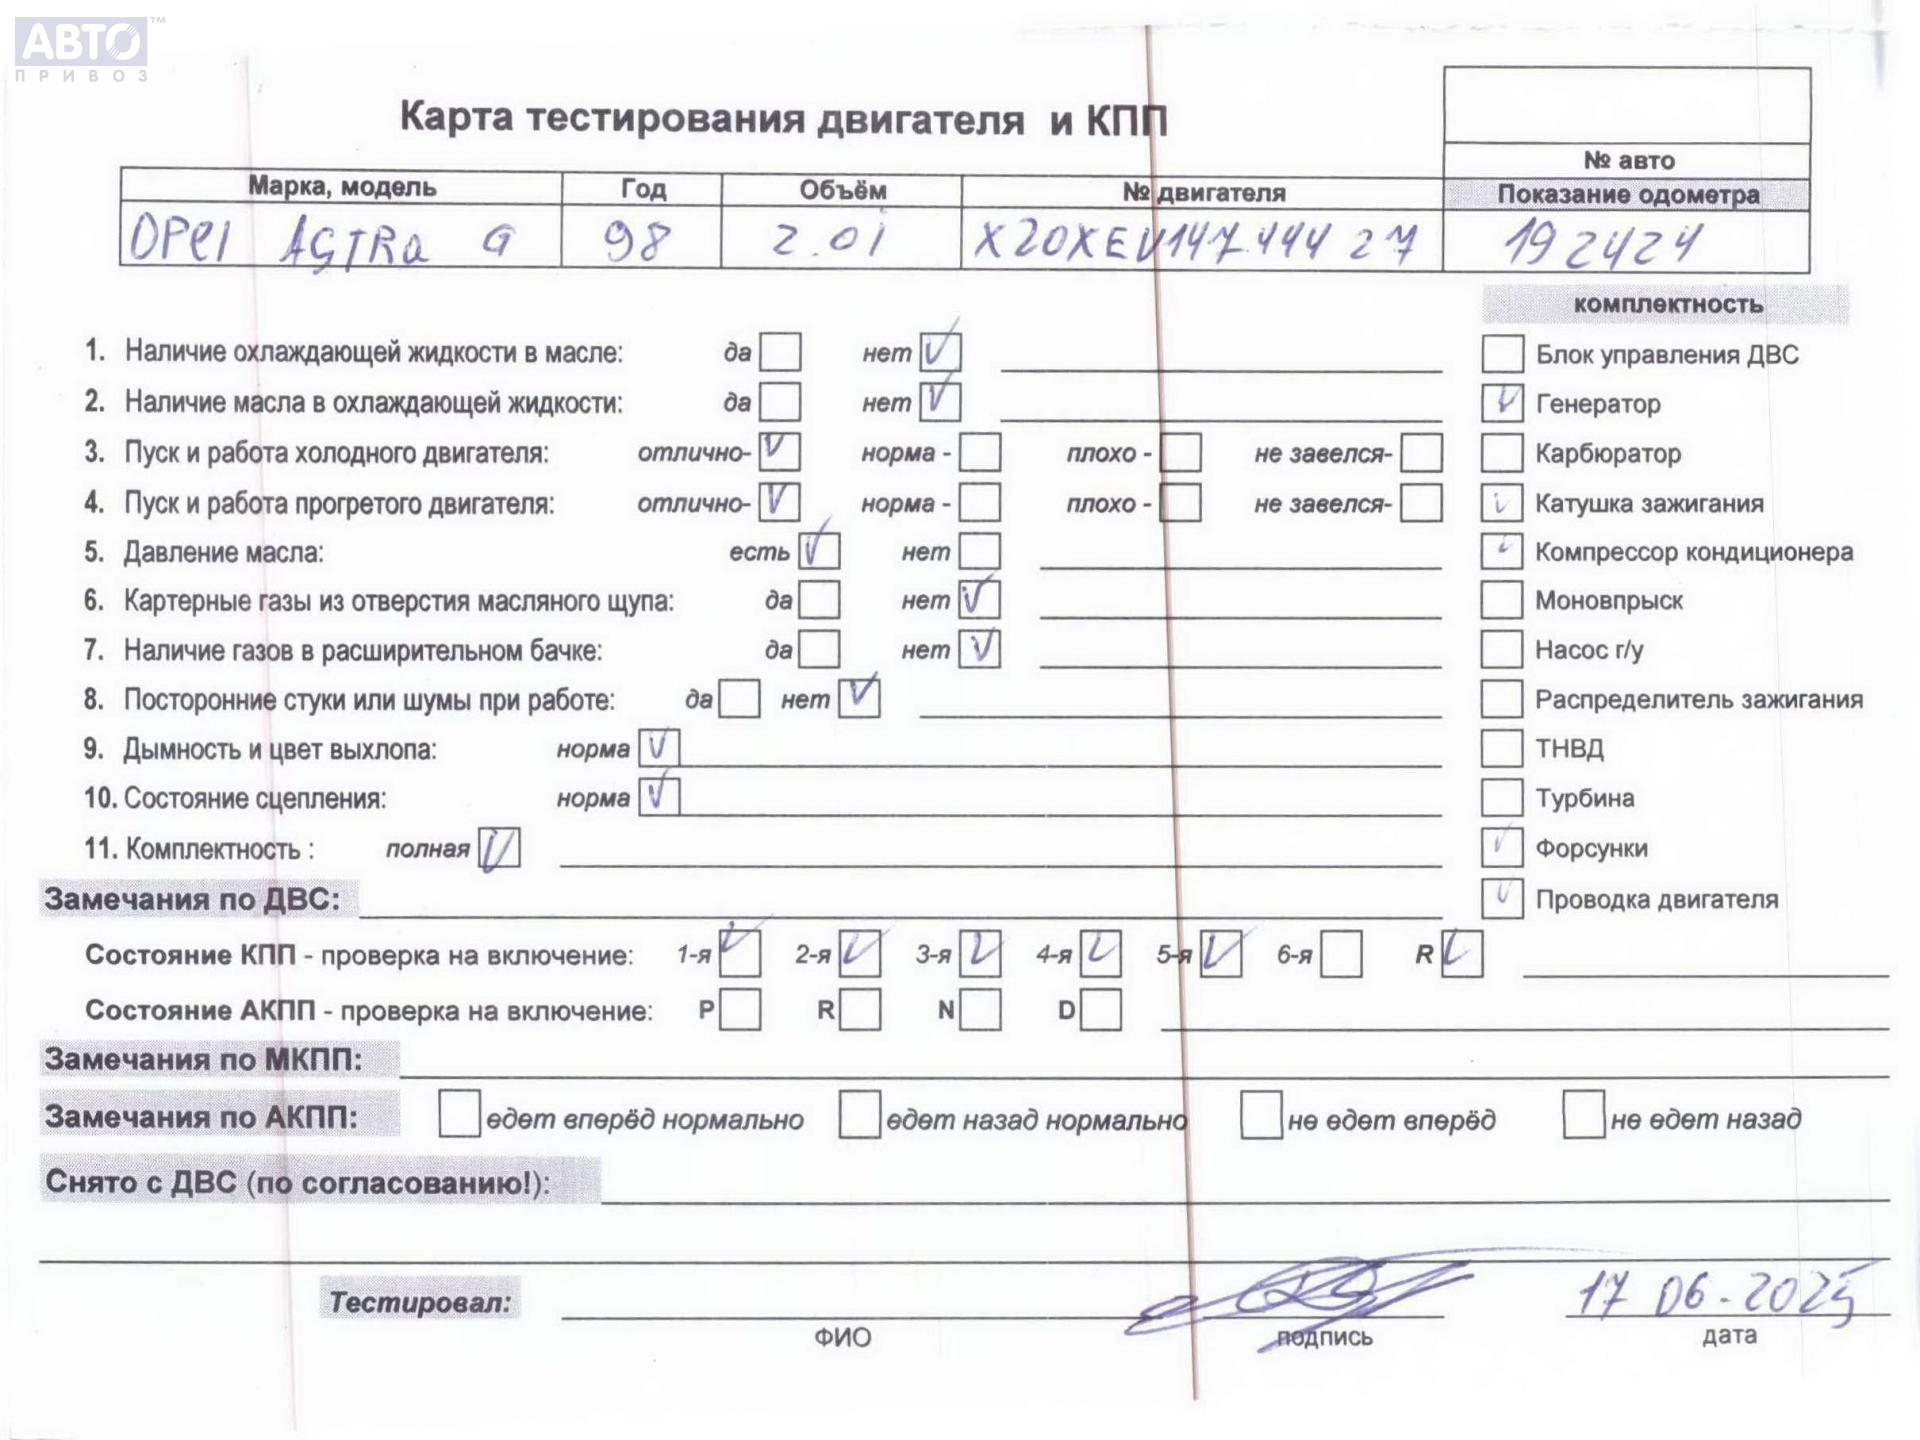 АВТО™
ПРИВОЗ
Карта тестирования двигателя и КПП
№ авто
Марка, модель Год Объём № двигателя Показание одометра
OPEl ASTRa G 98 2.0i X20XEV14744427 192424
комплектность
1. Наличие охлаждающей жидкости в масле: да нет ✓ Блок управления ДВС
2. Наличие масла в охлаждающей жидкости: да нет ✓ ✓ Генератор
3. Пуск и работа холодного двигателя: отлично- ✓ норма - плохо - не завелся- Карбюратор
4. Пуск и работа прогретого двигателя: отлично- ✓ норма - плохо - не завелся- ✓ Катушка зажигания
5. Давление масла: есть ✓ нет ✓ Компрессор кондиционера
6. Картерные газы из отверстия масляного щупа: да нет ✓ Моновпрыск
7. Наличие газов в расширительном бачке: да нет ✓ Насос г/у
8. Посторонние стуки или шумы при работе: да нет ✓ Распределитель зажигания
9. Дымность и цвет выхлопа: норма ✓ ТНВД
10. Состояние сцепления: норма ✓ Турбина
11. Комплектность : полная ✓ ✓ Форсунки
Замечания по ДВС: ✓ Проводка двигателя
Состояние КПП - проверка на включение: 1-я ✓ 2-я ✓ 3-я ✓ 4-я ✓ 5-я ✓ 6-я R ✓
Состояние АКПП - проверка на включение: P R N D
Замечания по МКПП:
Замечания по АКПП: едет вперёд нормально едет назад нормально не едет вперёд не едет назад
Снято с ДВС (по согласованию!):
Тестировал: 17 06.2025
ФИО подпись дата